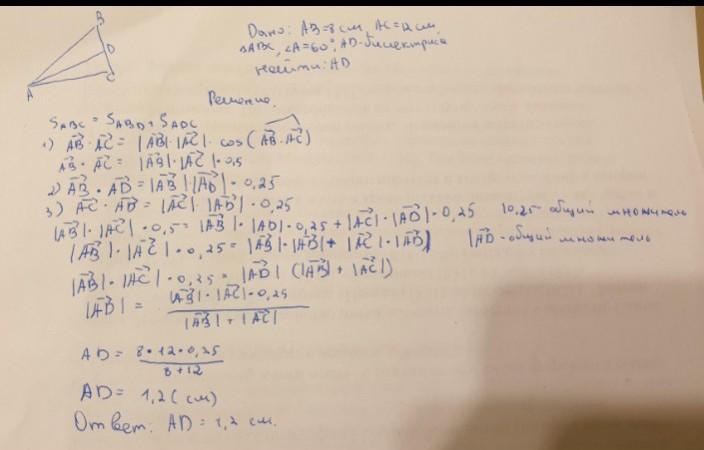 B
D
C
A
Дано: AB=8 см, AC=12 см,
△ABC, ∠A=60°, AD-биссектриса
Найти: AD
Решение.
S_ABC = S_ABD + S_ADC
1) AB⃗ · AC⃗ = |AB⃗| · |AC⃗| · cos(AB⃗ · AC⃗)
AB⃗ · AC⃗ = |AB⃗| · |AC⃗| · 0,5
2) AB⃗ · AD⃗ = |AB⃗| |AD⃗| · 0,25
3) AC⃗ · AD⃗ = |AC⃗| · |AD⃗| · 0,25
|AB⃗| · |AC⃗| · 0,5 = |AB⃗| · |AD| · 0,25 + |AC⃗| · |AD⃗| · 0,25 |0,25- общий множитель
|AB⃗| · |AC⃗| · 0,25 = |AB⃗| · |AD⃗| + |AC⃗| · |AD⃗| |AD⃗ - общий множитель
|AB⃗| · |AC⃗| · 0,25 = |AD⃗| (|AB⃗| + |AC⃗|)
|AD⃗| = |AB⃗| · |AC⃗| · 0,25
|AB⃗| + |AC⃗|
AD = 8 · 12 · 0,25
8 + 12
AD = 1,2 (см)
Ответ: AD = 1,2 см.